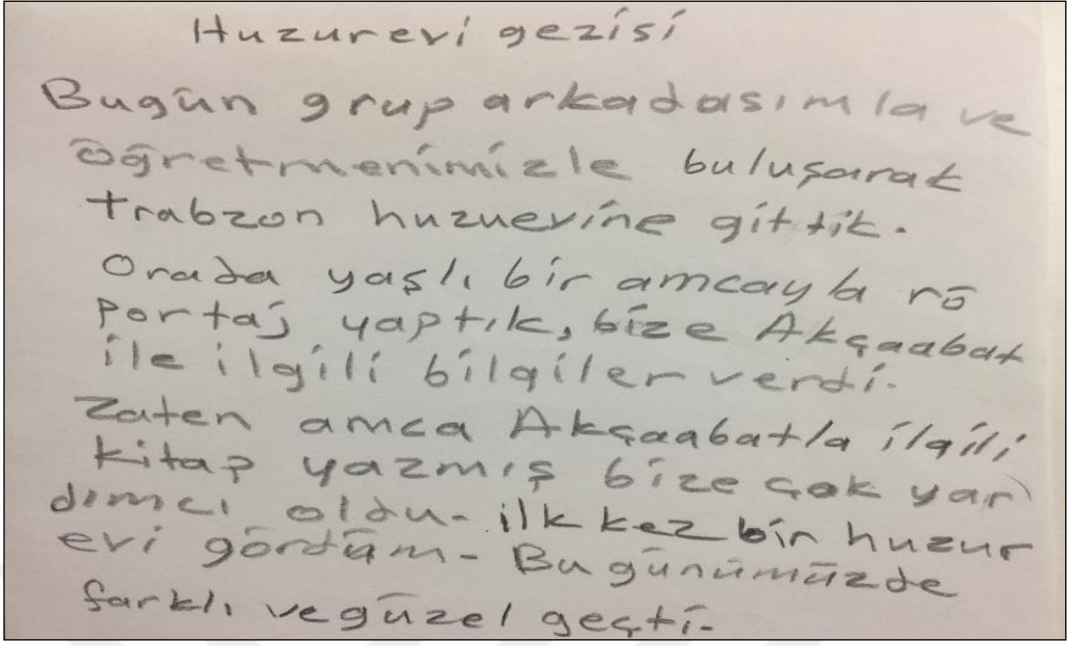 Huzurevi gezisi
Bugün grup arkadasımla ve
öğretmenimizle buluşarak
trabzon huzuevine gittik.
Orada yaşlı bir amcayla rö
portaj yaptık, bize Akçaabat
ile ilgili bilgiler verdi.
Zaten amca Akçaabatla ilgili
kitap yazmış bize çok yar
dımcı oldu. ilk kez bir huzur
evi gördüm. Bu günümüzde
farklı ve güzel geçti.